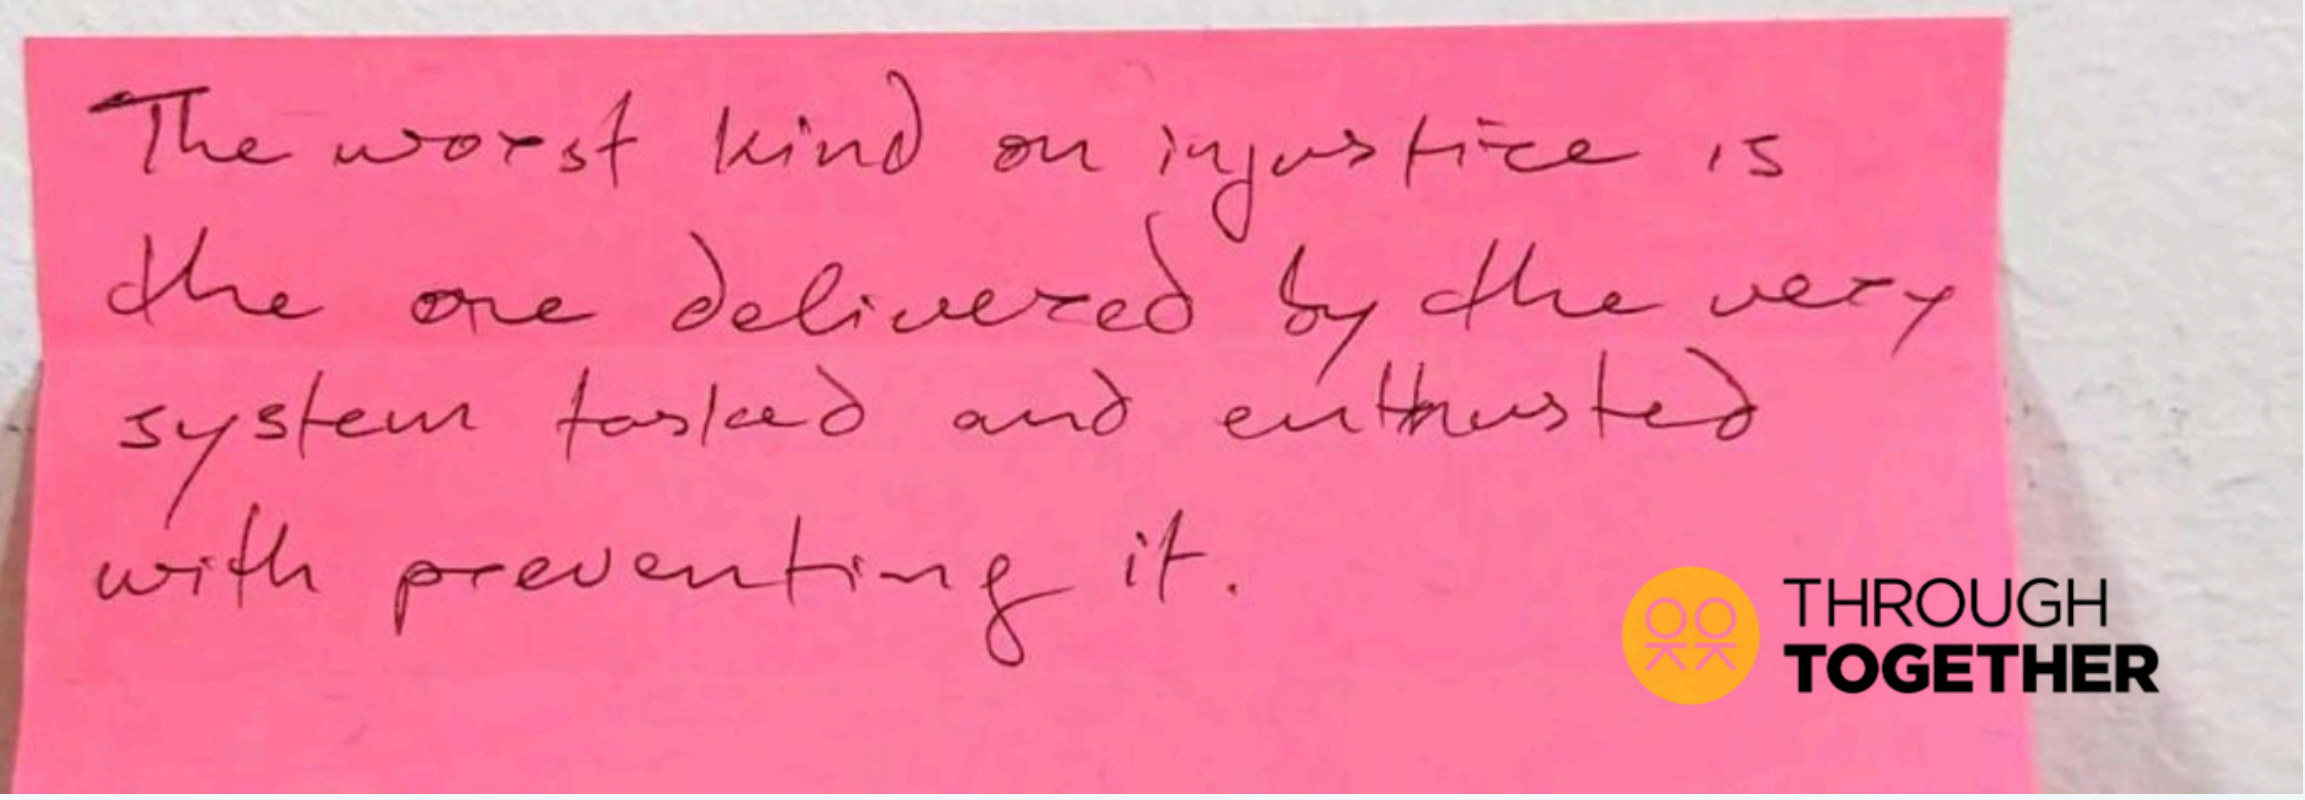 The worst kind on injustice is
the one delivered by the very
system tasked and enthrusted
with preventing it.
THROUGH
TOGETHER